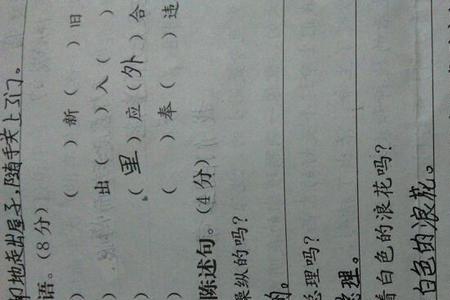 地走出屋子,随手关上了门。
语。(8分)
) ( )新( )旧
) 出( )入( )
) (里)应(外)合
) ( )奉( )违
陈述句。(4分)
操纵的吗?
的。
总理吗?
总理。
着白色的浪花吗?
白色的浪花。